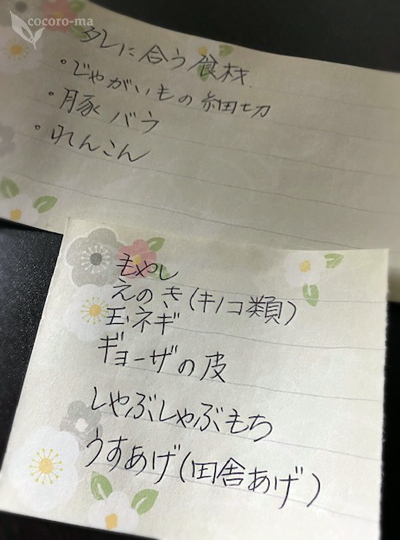 cocoro-ma
タレに合う食材
・じゃがいもの細切
・豚バラ
・れんこん
もやし
えのき(キノコ類)
玉ネギ
ギョーザの皮
しゃぶしゃぶもち
うすあげ(田舎あげ)